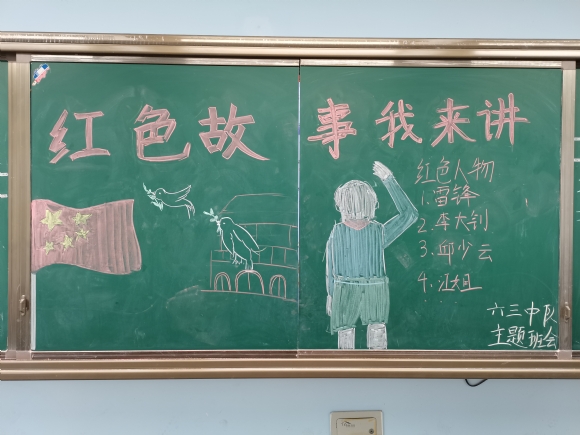 红色故事我来讲
红色人物
1.雷锋
2.李大钊
3.邱少云
4.江姐
六三中队
主题班会